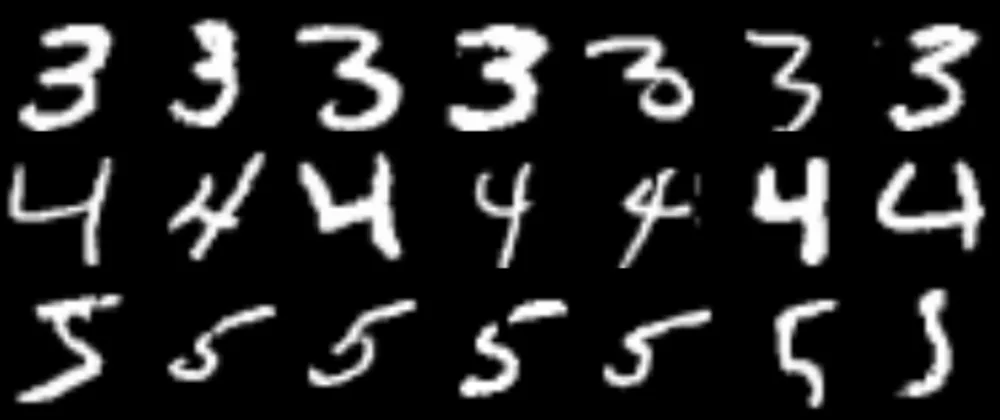 3 3 3 3 3 3 3
4 4 4 4 4 4 4
5 5 5 5 5 5 5